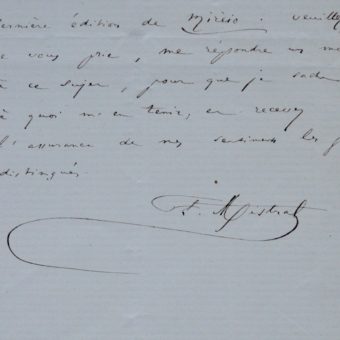 dernière édition de Mirèio. veuillez
je vous prie, me répondre un mo
à ce sujet, pour que je sache
à quoi m'en tenir, et recevez
l'assurance de mes sentiments les p
distingués
F. Mistral